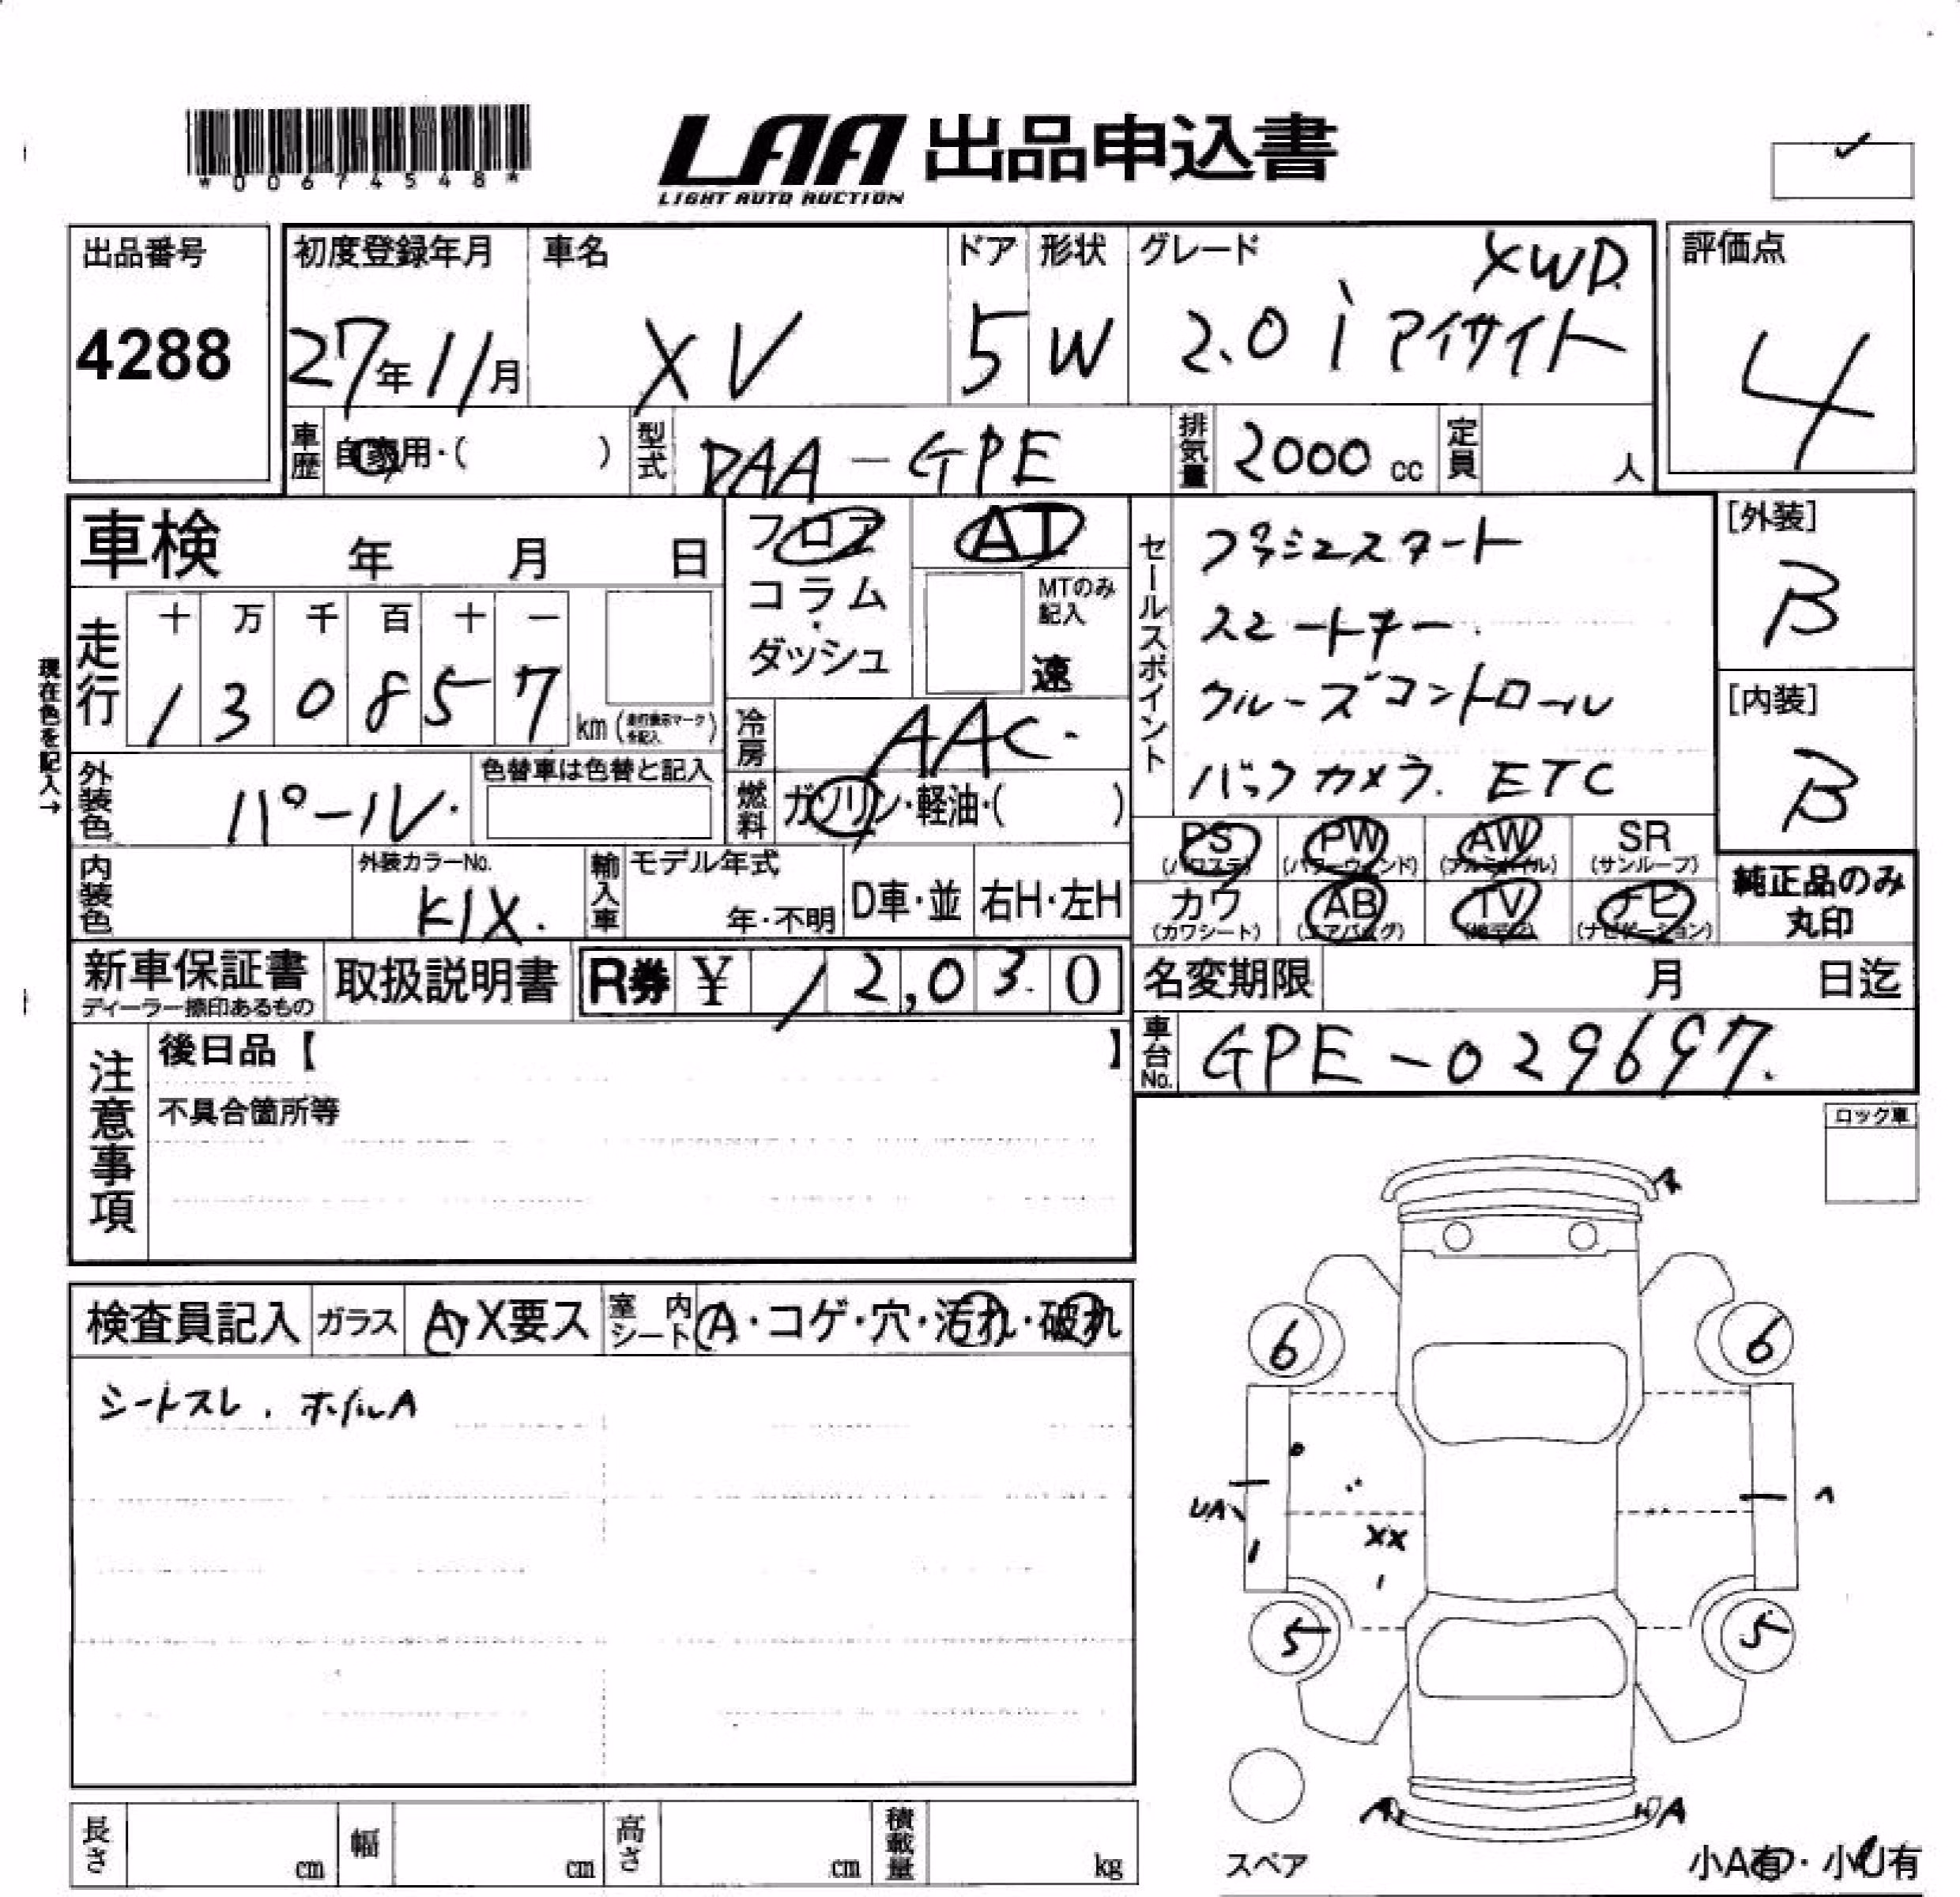 *00674548*
LAA 出品申込書
LIGHT AUTO AUCTION
出品番号
4288
初度登録年月
27年11月
車名
XV
ドア
5
形状
W
グレード
XWD
2.0i アイサイト
評価点
4
車歴
自家用・( )
型式
DAA-GPE
排気量
2000 cc
定員
人
車検 年 月 日
フロア
コラム・
ダッシュ
AT
MTのみ
記入
速
セールスポイント
プッシュスタート
スマートキー.
クルーズコントロール
バックカメラ. ETC
[外装]
B
[内装]
B
現在色を記入→
走行
十 万 千 百 十 一
1 3 0 8 5 7
km (走行表示マーク
を記入)
冷房
AAC.
燃料
ガソリン・軽油・( )
外装色
パール.
色替車は色替と記入
内装色
外装カラーNo.
K1X.
輸入車
モデル年式
年・不明
D車・並
右H・左H
PS
(パワステ)
PW
(パワーウィンド)
AW
(アルミホイル)
SR
(サンルーフ)
カワ
(カワシート)
AB
(エアバッグ)
TV
(地デジ)
ナビ
(ナビゲーション)
純正品のみ
丸印
新車保証書
ディーラー捺印あるもの
取扱説明書
R券 ¥ 12,030
名変期限 月 日迄
車台No.
GPE-029697.
注意事項
後日品【 】
不具合箇所等
ロック車
検査員記入
ガラス
A・X要ス
室内
シート
A・コゲ・穴・汚れ・破れ
シートスレ . ホイルA
A
6 6
UA
A
XX
5 5
A A
スペア
小A有・小U有
長さ cm
幅 cm
高さ cm
積載量 kg